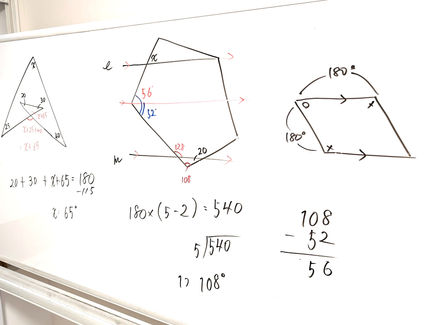 x
20
30
25
20 + 30 + x + 65 = 180
- 115
x = 65°
l
x
56°
52°
m
128
20
108
180 × (5 - 2) = 540
5 540
1つ 108°
180°
180°
O
x
x
108
- 52
56